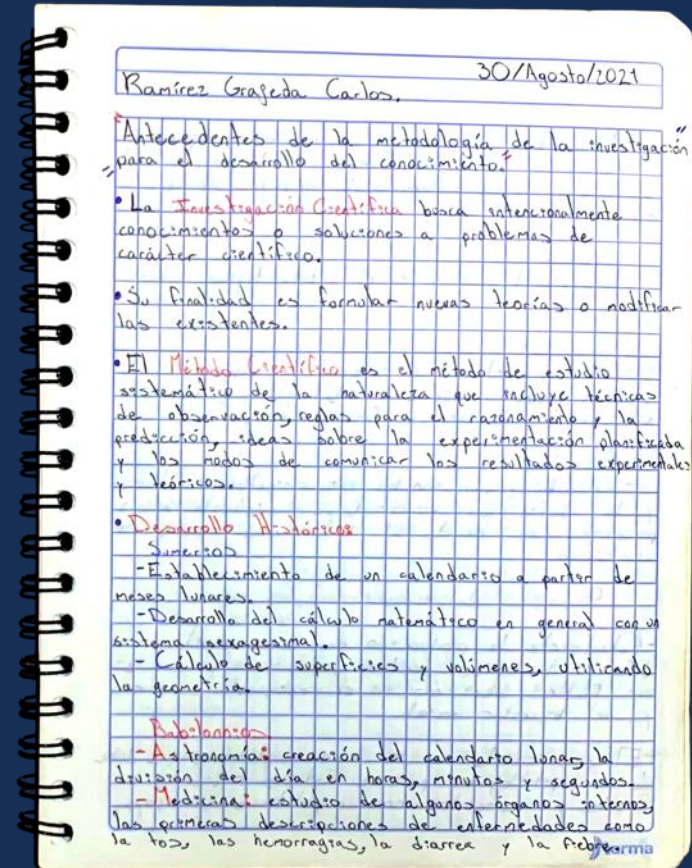 30/Agosto/2021
Ramírez Grageda Carlos.
"Antecedentes de la metodología de la investigación"
"para el desarrollo del conocimiento."
• La Investigación Científica busca intencionalmente
conocimientos o soluciones a problemas de
carácter científico.
• Su finalidad es formular nuevas teorías o modificar
las existentes.
• El Método Científico es el método de estudio
sistemático de la naturaleza que incluye técnicas
de observación, reglas para el razonamiento y la
predicción, ideas sobre la experimentación planificada
y los modos de comunicar los resultados experimentales
y teóricos.
• Desarrollo Histórico:
Sumerios
- Establecimiento de un calendario a partir de
meses lunares.
- Desarrollo del cálculo matemático en general con un
sistema sexagesimal.
- Cálculo de superficies y volúmenes, utilizando
la geometría.
Babilonios
- Astronomía: creación del calendario lunar, la
división del día en horas, minutos y segundos.
- Medicina: estudio de algunos órganos internos,
las primeras descripciones de enfermedades como
la tos, las hemorragias, la diarrea y la fiebre.